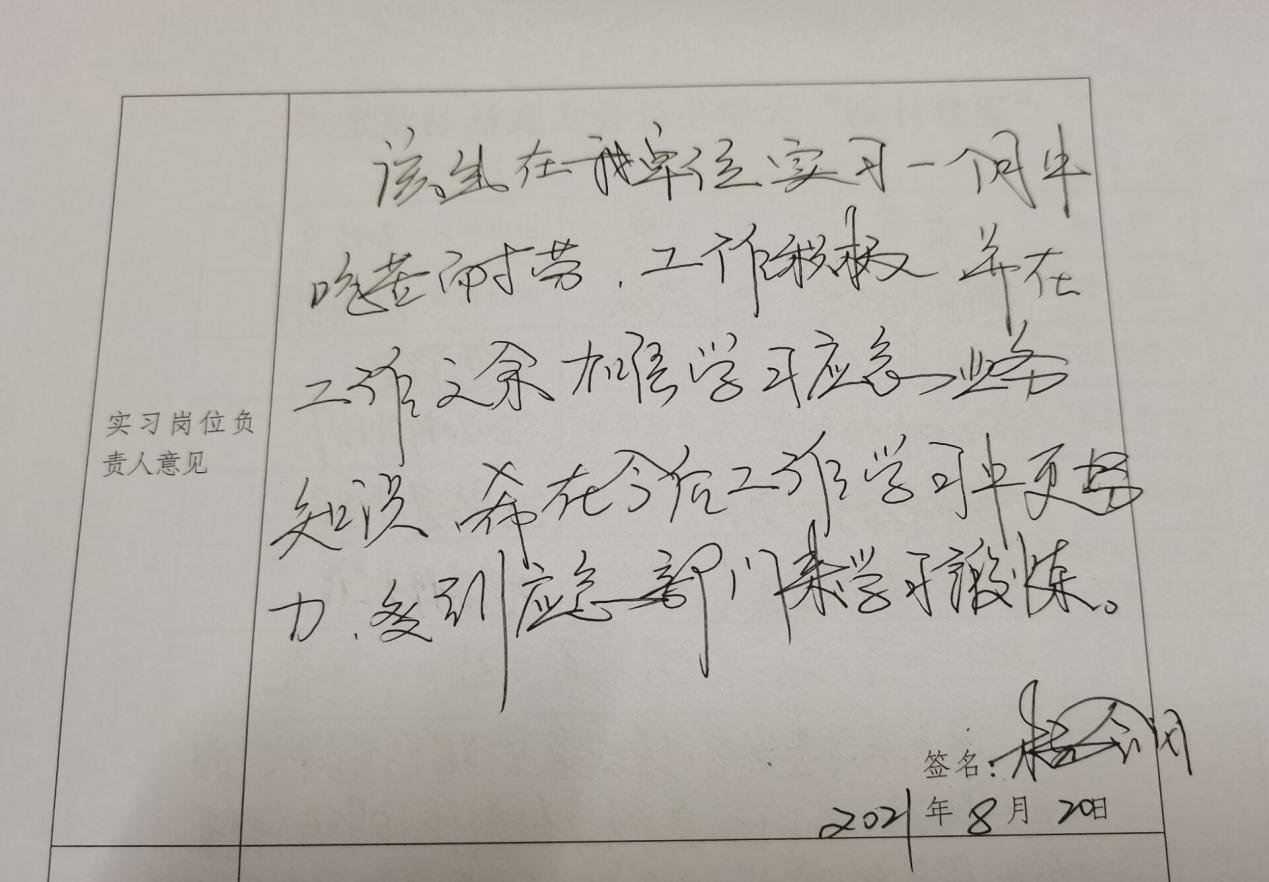 该生在我单位实习一个月中
吃苦耐劳，工作积极 并在
工作之余加强学习应急业务
实习岗位负
责人意见
知识 希在今后工作学习中更努
力，多到应急部门来学习锻炼。
签名：
2021年8月20日